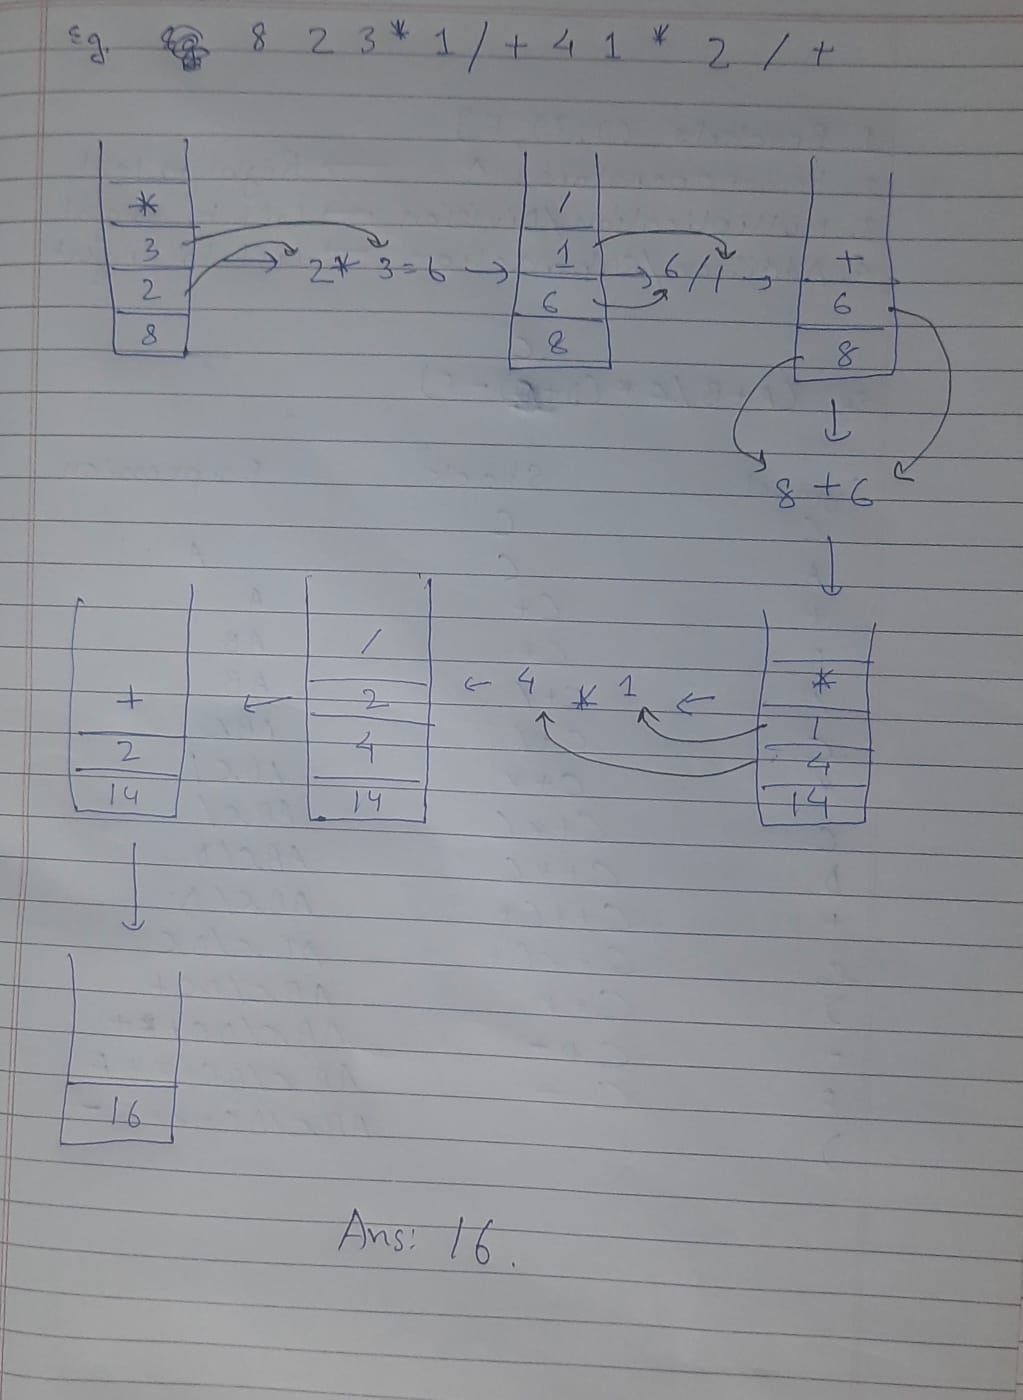 Eg. 8 2 3 * 1 / + 4 1 * 2 / +
*
3
2
8
2 * 3 = 6
/
1
6
8
6 / 1
+
6
8
8 + 6
*
1
4
14
4 * 1
/
2
4
14
+
2
14
-16
Ans: 16.